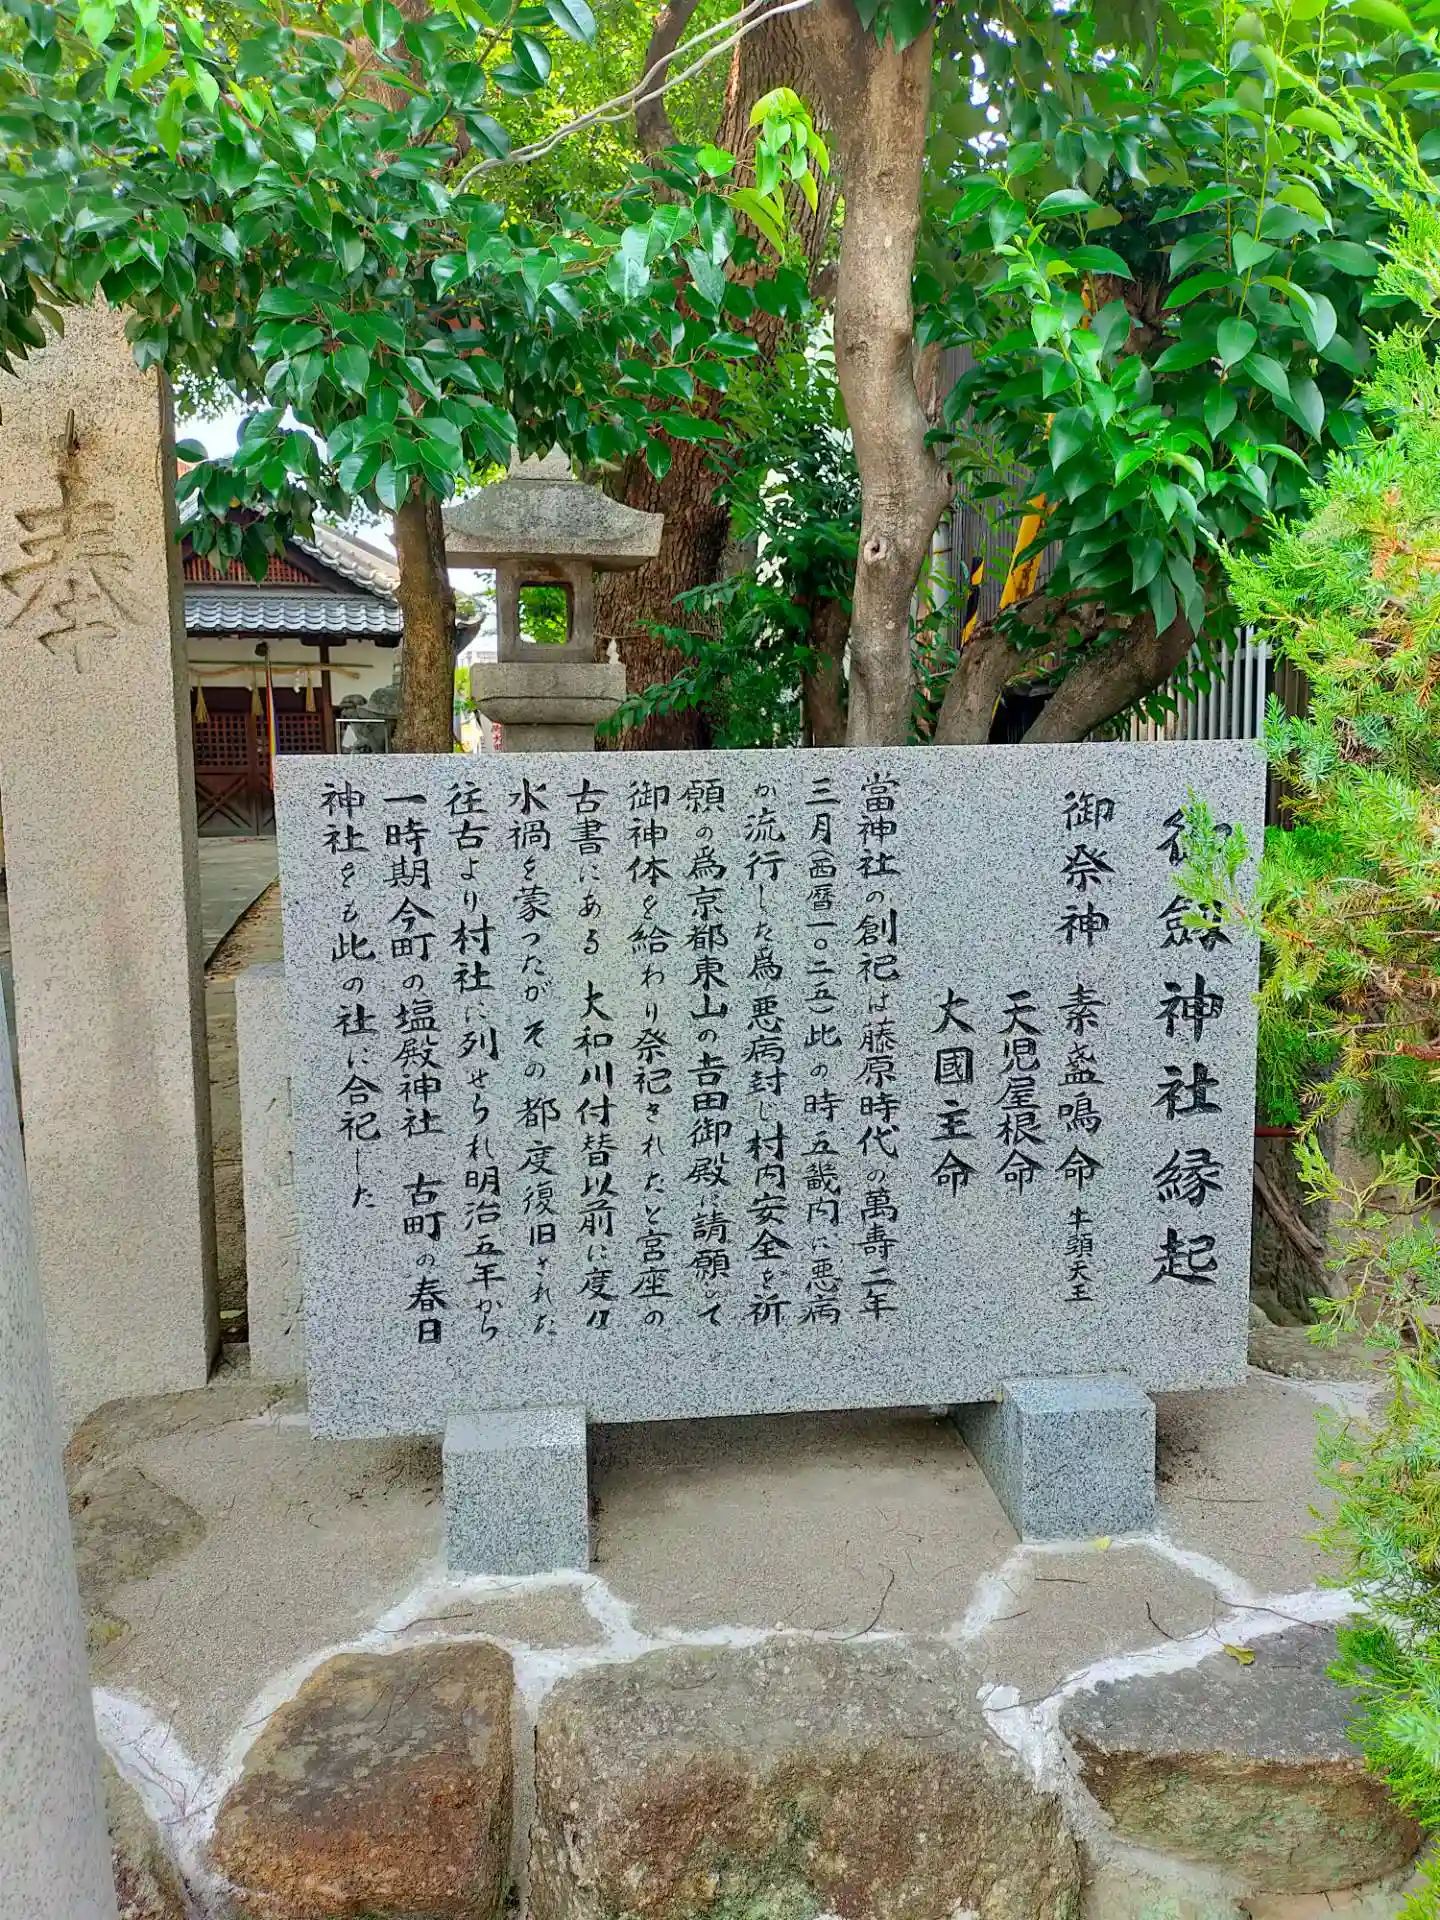 御劔神社縁起
御祭神 素盞鳴命 牛頭天王
天児屋根命
大國主命
當神社の創祀は藤原時代の萬壽二年
三月(西暦一〇二五)此の時五畿内に悪病
が流行した為悪病封じ村内安全を祈
願の為京都東山の吉田御殿に請願して
御神体を給わり祭祀されたと宮座の
古書にある 大和川付替以前に度々
水禍を蒙ったがその都度復旧された
往古より村社に列せられ明治五年から
一時期今町の塩殿神社 古町の春日
神社をも此の社に合祀した
奉